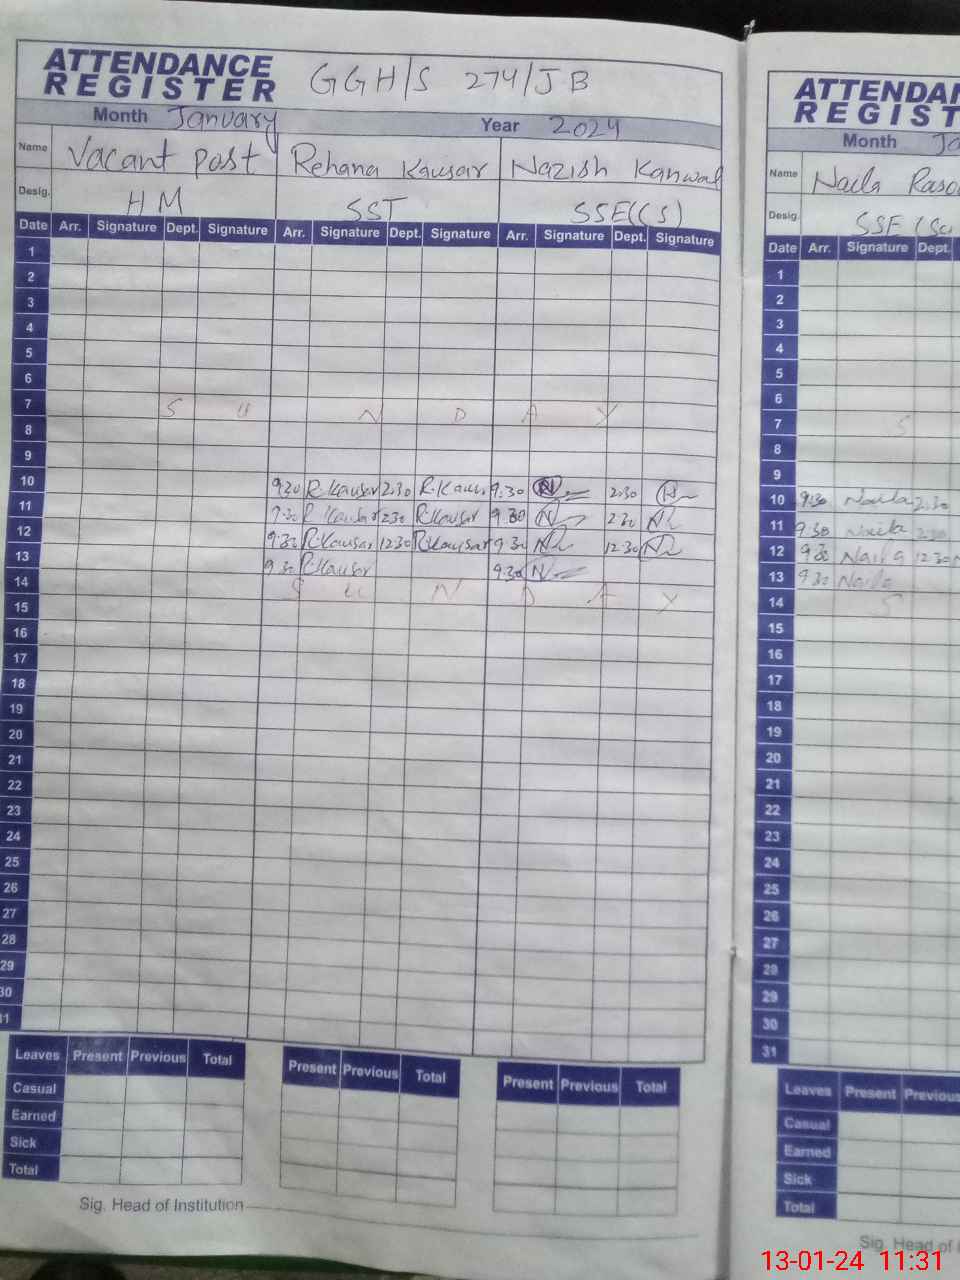 ATTENDANCE REGISTER GGH/S 274/JB
Month January Year 2024
Name Vacant post Rehana Kausar Nazish Kanwal
Desig. HM SST SSE(CS)
Date Arr. Signature Dept. Signature Arr. Signature Dept. Signature Arr. Signature Dept. Signature
1
2
3
4
5
6
7 S U N D A Y
8
9
10 9:30 R.Kausar 2:30 R.Kausar 9:30 N 2:30 N
11 9:30 R.Kausar 2:30 R.Kausar 9:30 N 2:30 N
12 9:30 R.Kausar 12:30 R.Kausar 9:30 N 12:30 N
13 9:30 R.Kausar 9:30 N
14 S U N D A Y
15
16
17
18
19
20
21
22
23
24
25
26
27
28
29
30
31
Leaves Present Previous Total Present Previous Total Present Previous Total
Casual
Earned
Sick
Total
Sig. Head of Institution
ATTENDAN
REGIST
Month Ja
Name Naila Raso
Desig. SSE (Sc
Date Arr. Signature Dept.
1
2
3
4
5
6
7 S
8
9
10 9:30 Naila 2:30
11 9:30 Naila 2:30
12 9:30 Naila 12:30
13 9:30 Naila
14 S
15
16
17
18
19
20
21
22
23
24
25
26
27
28
29
30
31
Leaves Present Previous
Casual
Earned
Sick
Total
Sig. Head of
13-01-24 11:31